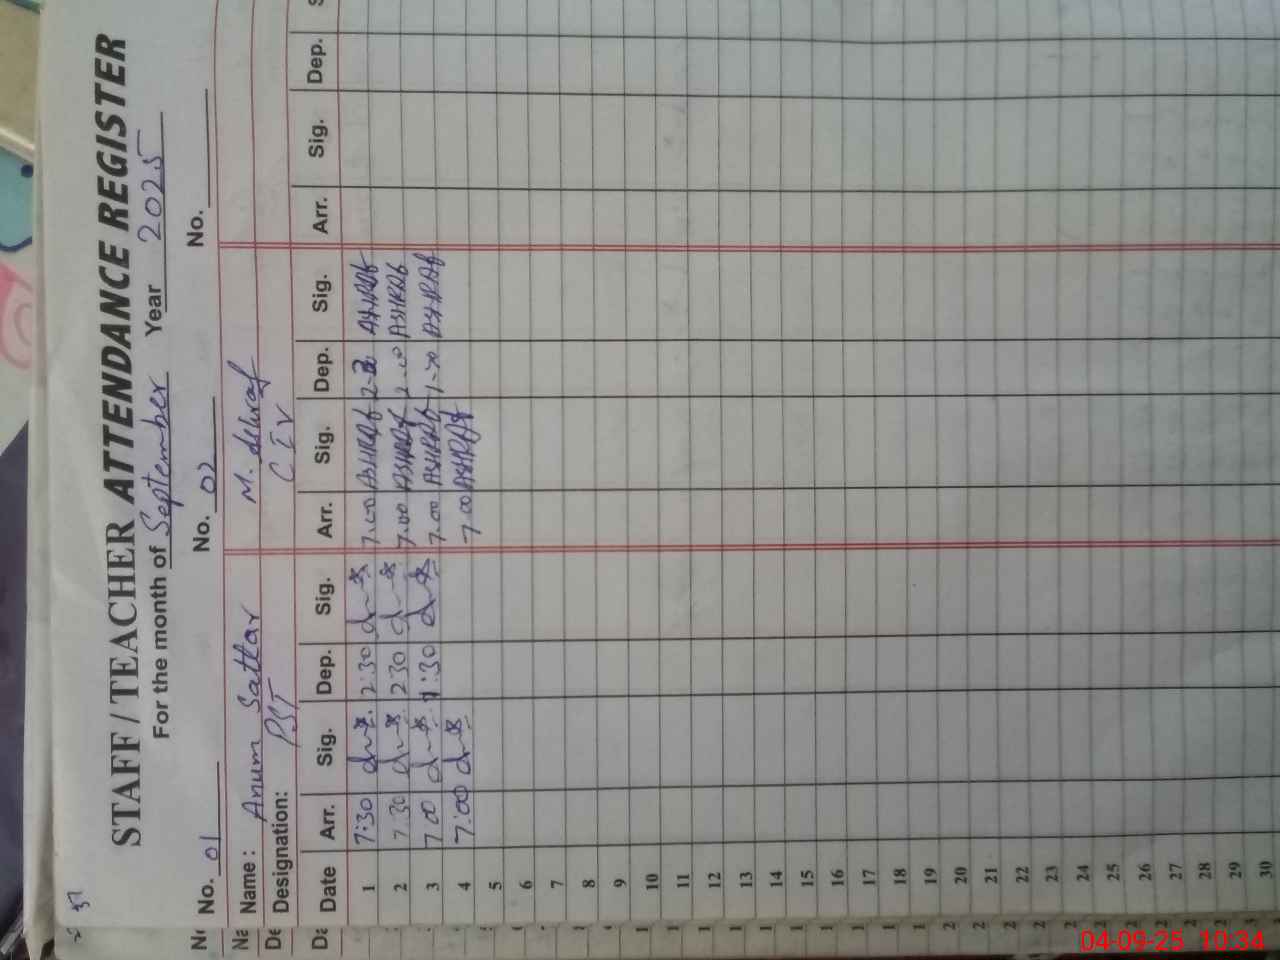 37
STAFF / TEACHER ATTENDANCE REGISTER
For the month of September Year 2025
No. 01 No. 02 No.
Name : Anum Sattar M. Ashraf
Designation: PST C IV
Date Arr. Sig. Dep. Sig. Arr. Sig. Dep. Sig. Arr. Sig. Dep. S
1 7:30 2:30 7.00 ASHRAf ASHRAf
2 7.30 230 7.00 ASHRAf 2.00 ASHRAf
3 7 00 1:30 7.00 ASHRAf ASHRAf
4 7:00 7.00 ASHRAf
5
6
7
8
9
10
11
12
13
14
15
16
17
18
19
20
21
22
23
24
25
26
27
28
29
30
04-09-25 10:34